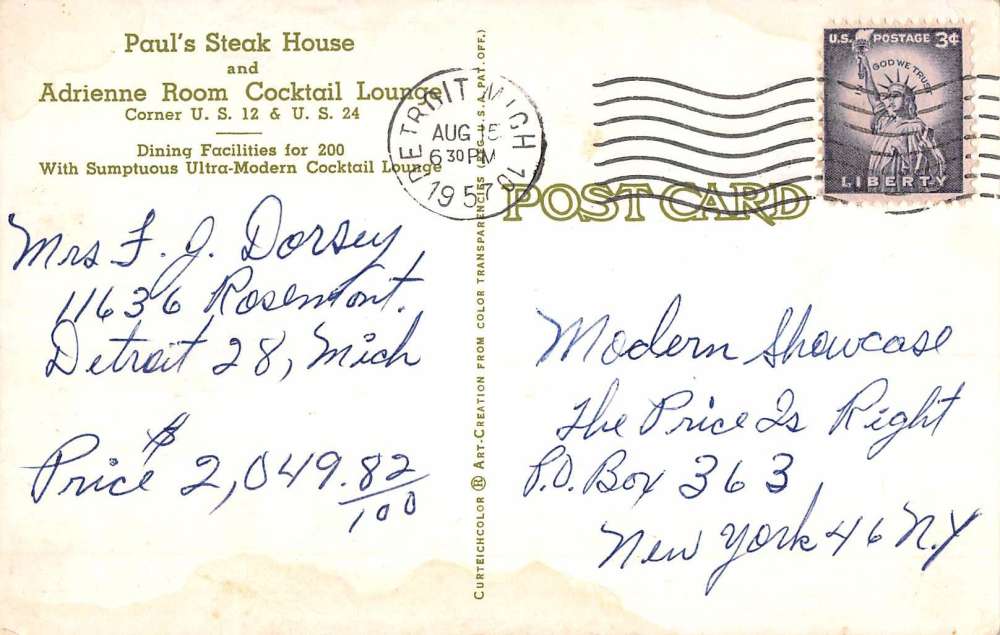 Paul's Steak House
and
Adrienne Room Cocktail Lounge
Corner U. S. 12 & U. S. 24
Dining Facilities for 200
With Sumptuous Ultra-Modern Cocktail Lounge
Mrs F. J. Dorsey
11636 Rosemont.
Detroit 28, Mich
Price $ 2,049.82/100
CURTEICHCOLOR ® ART-CREATION FROM COLOR TRANSPARENCIES (REG. U.S.A. PAT. OFF.)
DETROIT MICH 10
AUG 15
6 30 PM
1957
U.S. POSTAGE 3¢
IN GOD WE TRUST
LIBERTY
POST CARD
Modern Showcase
The Price Is Right
P.O. Box 363
New York 46 N.Y